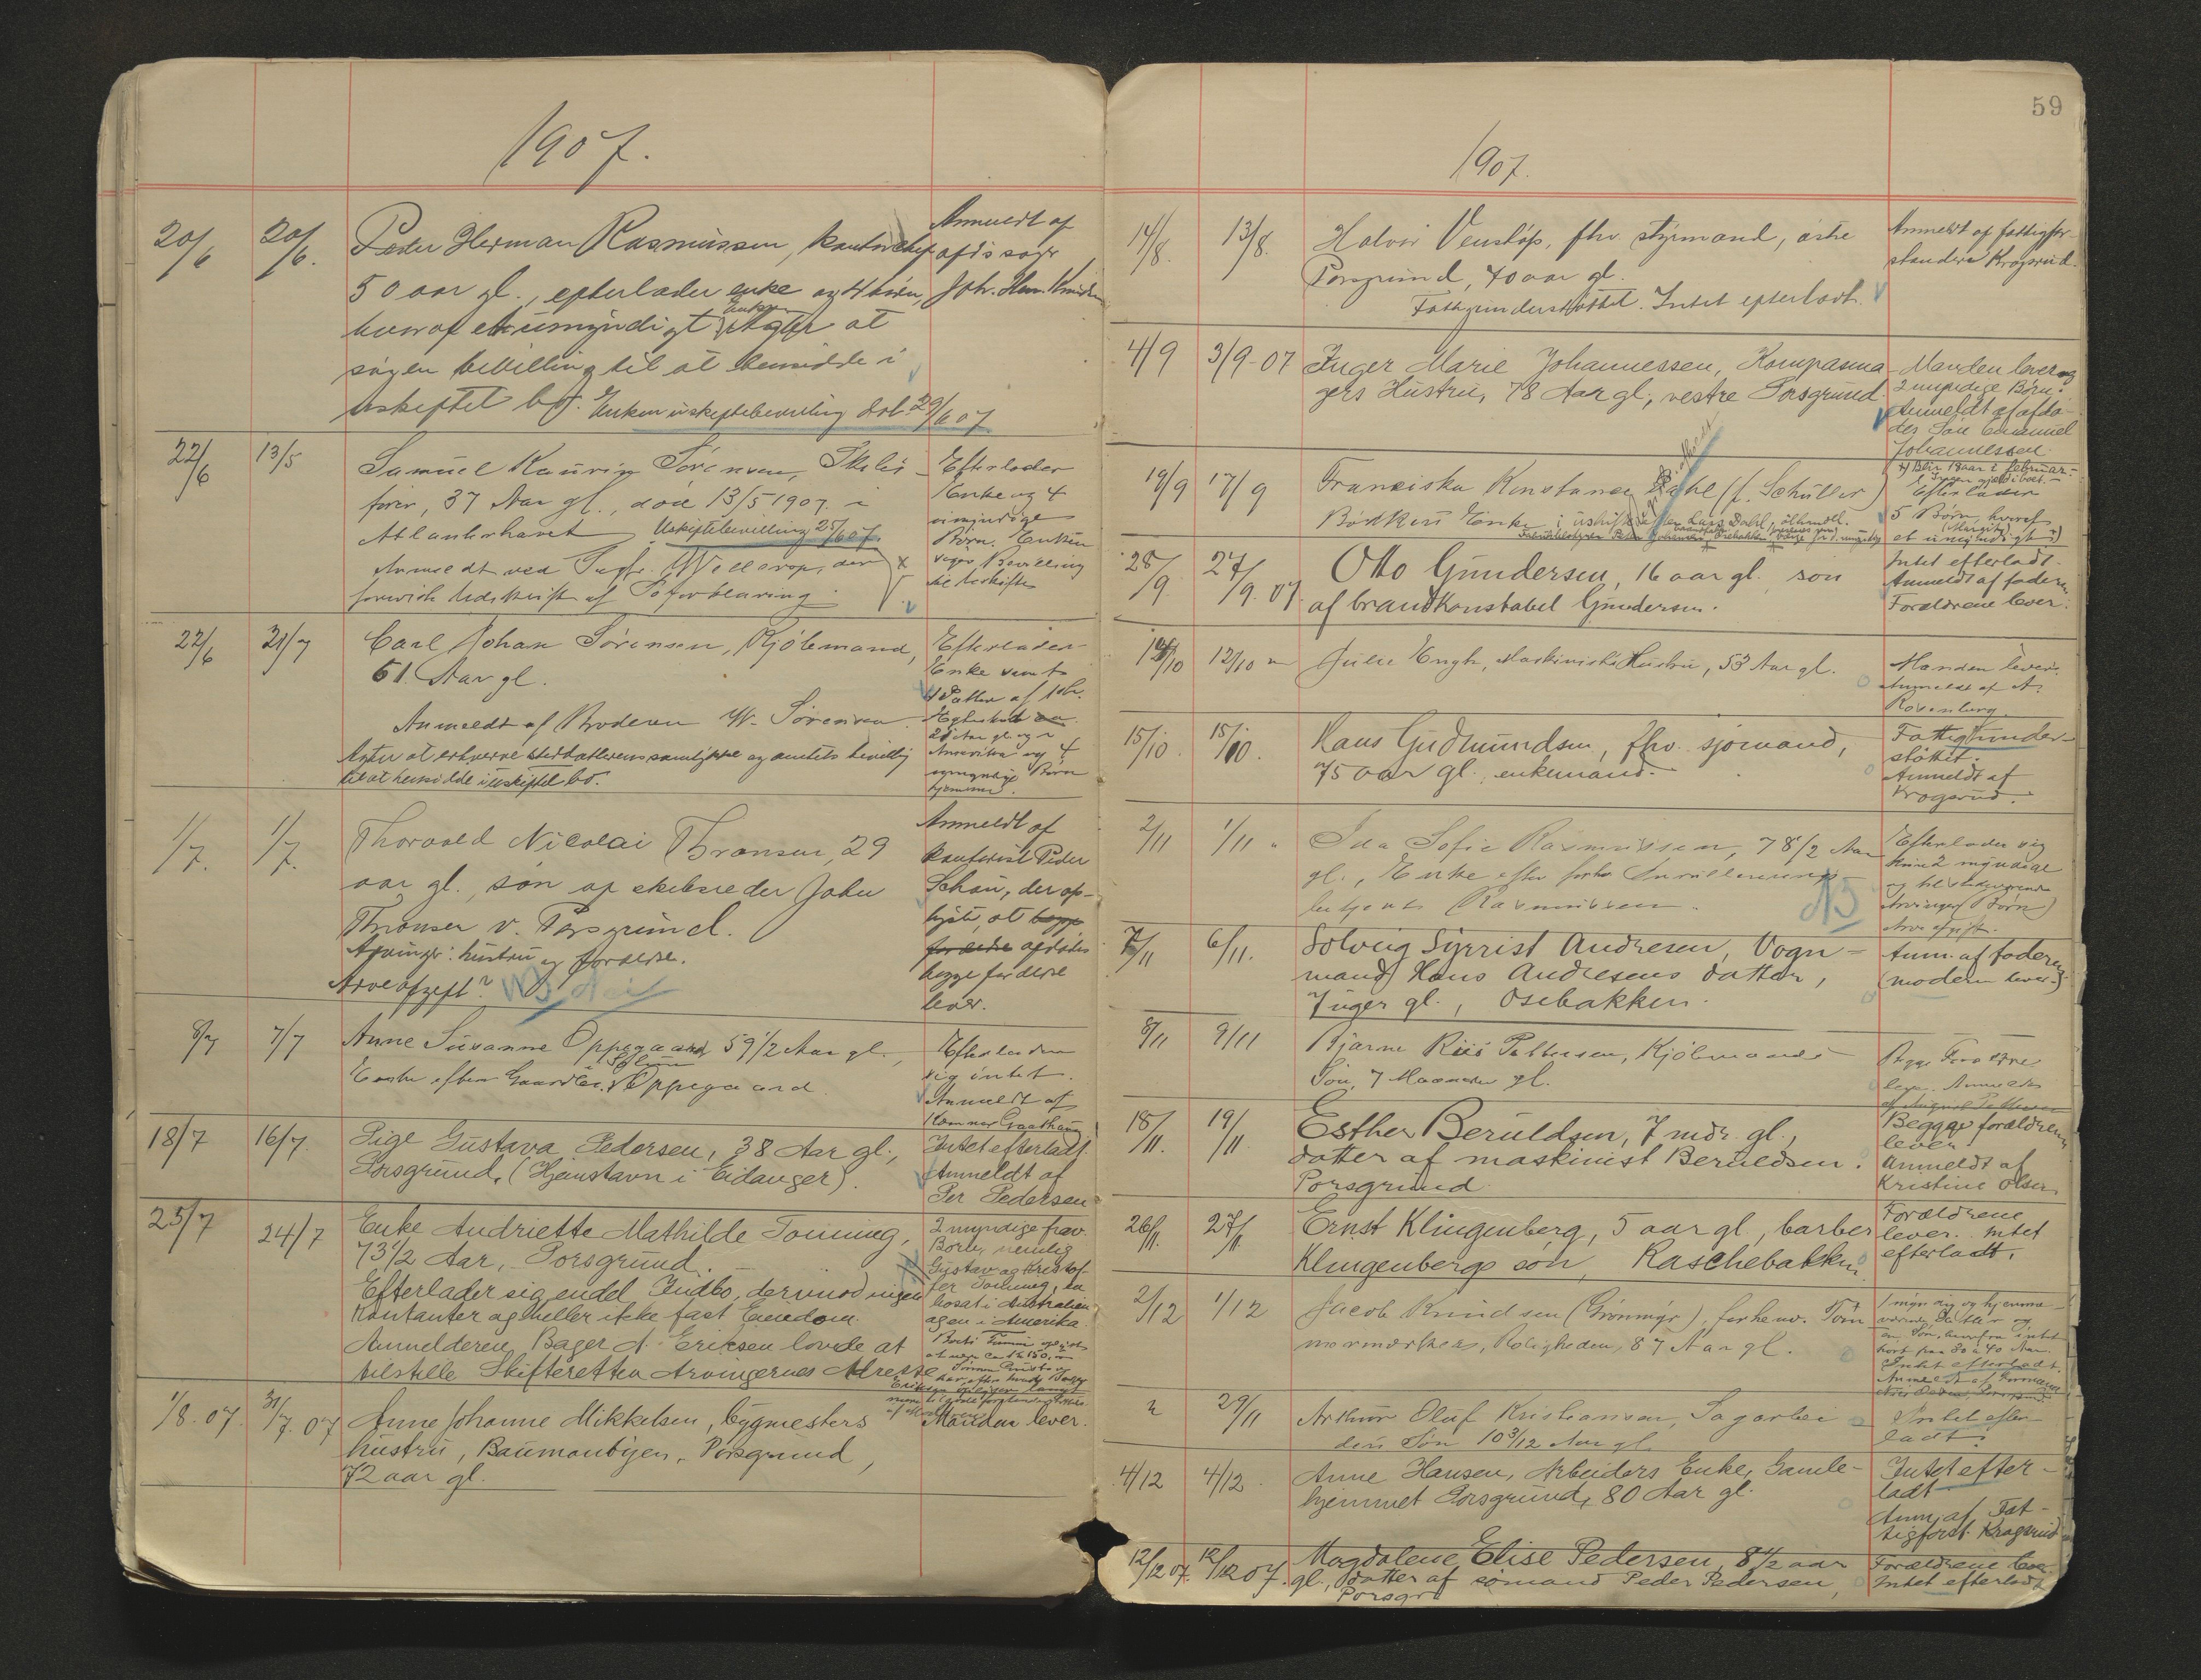 1907.
20/6 20/6. Peder Herman Rasmussen, kontorchef
50 aar gl., efterlader enke og 4 börn,
hvoraf et umyndigt. Enken agter at
söge bevilling til at hensidde i
uskiftet bo. Enken uskiftebevilling dat. 29/6 07
Anmeldt af
afdödes
Joh. Herm.
22/6 13/5 Samuel Kauring Sörensen, Skibs-
förer, 37 Aar gl., död 13/5 1907 i
Atlanterhavet Uskiftebevilling 25/6 07.
Anmeldt ved Sagfr. der
Udskrift af Söforklaring
Efterlader
Enke og 4
umyndige
Börn. Enken
söger Bevilling
til Uskifte
22/6 21/7 Carl Johan Sörensen, Kjöbmand,
61 Aar gl.
Anmeldt af Broderen W. Sörensen
Agter at erhverve samtykke og amtets bevilling
til at hensidde i uskiftet bo.
Efterlader
Enke samt
Datter af 1ste
Amerika og 4
umyndige Börn
hjemme.
1/7. 1/7. Thorvald Nicolai Thronsen, 29
aar gl., sön af skibsreder John
Thronsen v. Porsgrund.
Arvinger: hustru og forældre.
Arveafgift?
Anmeldt af
kontorist Peder
Schau, der op-
lyste, at begge
forældre afdödes
begge forældre
lever.
8/7 7/7 Anne Susanne Oppegaard, 59 1/2 Aar gl.,
Enke efter Gaardbr. Oppegaard
Efterlader
sig intet.
Anmeldt af
18/7 16/7 Pige Gustava Pedersen, 38 Aar gl.,
Porsgrund, (Hjemstavn i Eidanger).
Intet efterladt.
Anmeldt af
Per Pedersen
25/7 24/7 Enke Andriette Mathilde Tonning,
73 1/2 Aar, Porsgrund.
Efterlader sig endel Indbo, derimod ingen
Kontanter og heller ikke fast Eiendom.
Anmelderen Bager A. Eriksen lovede at
tilstille Skifteretten Arvingernes Adresse
2 myndige frav.
Börn, nemlig
Gustav og Kristof-
fer Tonning, en
bosat i Australien
og en i Amerika.
1/8.07. 31/7.07 Anne Johanne Mikkelsen, bygmesters
hustru, Baumanbyen, Porsgrund,
72 aar gl.
Manden lever.
59
1907.
14/8. 13/8. Halvor Venstöp, fhv. styrmand, östre
Porsgrund, 70 aar gl.
Fattigunderstöttet. Intet efterladt.
Anmeldt af fattigfor-
stander Kragsrud.
4/9 3/9-07 Inger Marie Johannessen, Kompasma-
gers Hustru, 78 Aar gl., vestre Porsgrund.
Manden lever og
2 myndige Börn.
Anmeldt af afdö-
des Sön Emanuel
Johannessen.
19/9 17/9 Franciska Konstance Dahl (f. Schüller)
Enke i uskiftet efter Lars Dahl, ölhandl.
Blir 18 aar i februar.
Ingen gjæld i boet.
Efterlader
5 Börn, hvoraf
(Margith)
et umyndigt
28/9. 27/9.07. Otto Gundersen, 16 aar gl., sön
af brandkonstabel Gundersen.
Intet efterladt.
Anmeldt af faderen.
Forældrene lever.
14/10 12/10 Julie Engh, Maskinists Hustru, 53 Aar gl.
Manden lever.
Anmeldt af A.
Rosenberg
15/10. 15/10. Hans Gudmundsen, fhv. sjömand,
75 aar gl., enkemand.
Fattigunder-
stöttet.
Anmeldt af
Kragsrud.
2/11 1/11 Ina Sofie Rasmussen, 78 1/2 Aar
gl., Enke efter forhv.
betjent Rasmussen.
Efterlader sig
kun 2 myndige
og tilstedeværende
Arvinger (Börn)
Arveafgift.
NB
7/11 6/11. Solveig Sigrist Andresen, Vogn-
mand Hans Andresens datter,
7 uger gl., Osebakken.
Anm. af faderen
(moderen lever.)
8/11 9/11 Bjarne Riis Pettersen, Kjöbmands
Sön, 7 Maaneder gl.
Begge Forældre
lever. Anmeldt
af August Pettersen
18/11. 19/11. Esther Beruldsen, 7 mdr. gl.,
datter af maskinist Beruldsen.
Porsgrund
Begge forældrene
lever
Anmeldt af
Kristine Olsen
26/11. 27/11. Ernst Klingenberg, 5 aar gl., barber
Klingenbergs sön, Raschebakken.
Forældrene
lever. Intet
efterladt.
2/12 1/12 Jacob Knudsen (Grönmyr), forhenv. Töm-
mermærker, Roligheden, 87 Aar gl.
1 myndig og hjemme-
værende Datter og
en Sön, hvorfra intet
hört paa 30 à 40 Aar.
Intet efterladt.
" 29/11 Arthur Oluf Kristiansen, Sagarbei-
ders Sön 10 3/12 Aar gl.
Intet efter-
ladt.
4/12 4/12 Anne Hansen, Arbeiders Enke, Gamle-
hjemmet Porsgrund, 80 Aar gl.
Intet efter-
ladt
Anm. af Fat-
tigforst. Kragsrud
12/12 07. 12/12 07. Magdalene Elise Pedersen, 8 1/2 aar
gl., datter af sömand Peder Pedersen,
Porsgr.
Forældrene lever.
Intet efterladt